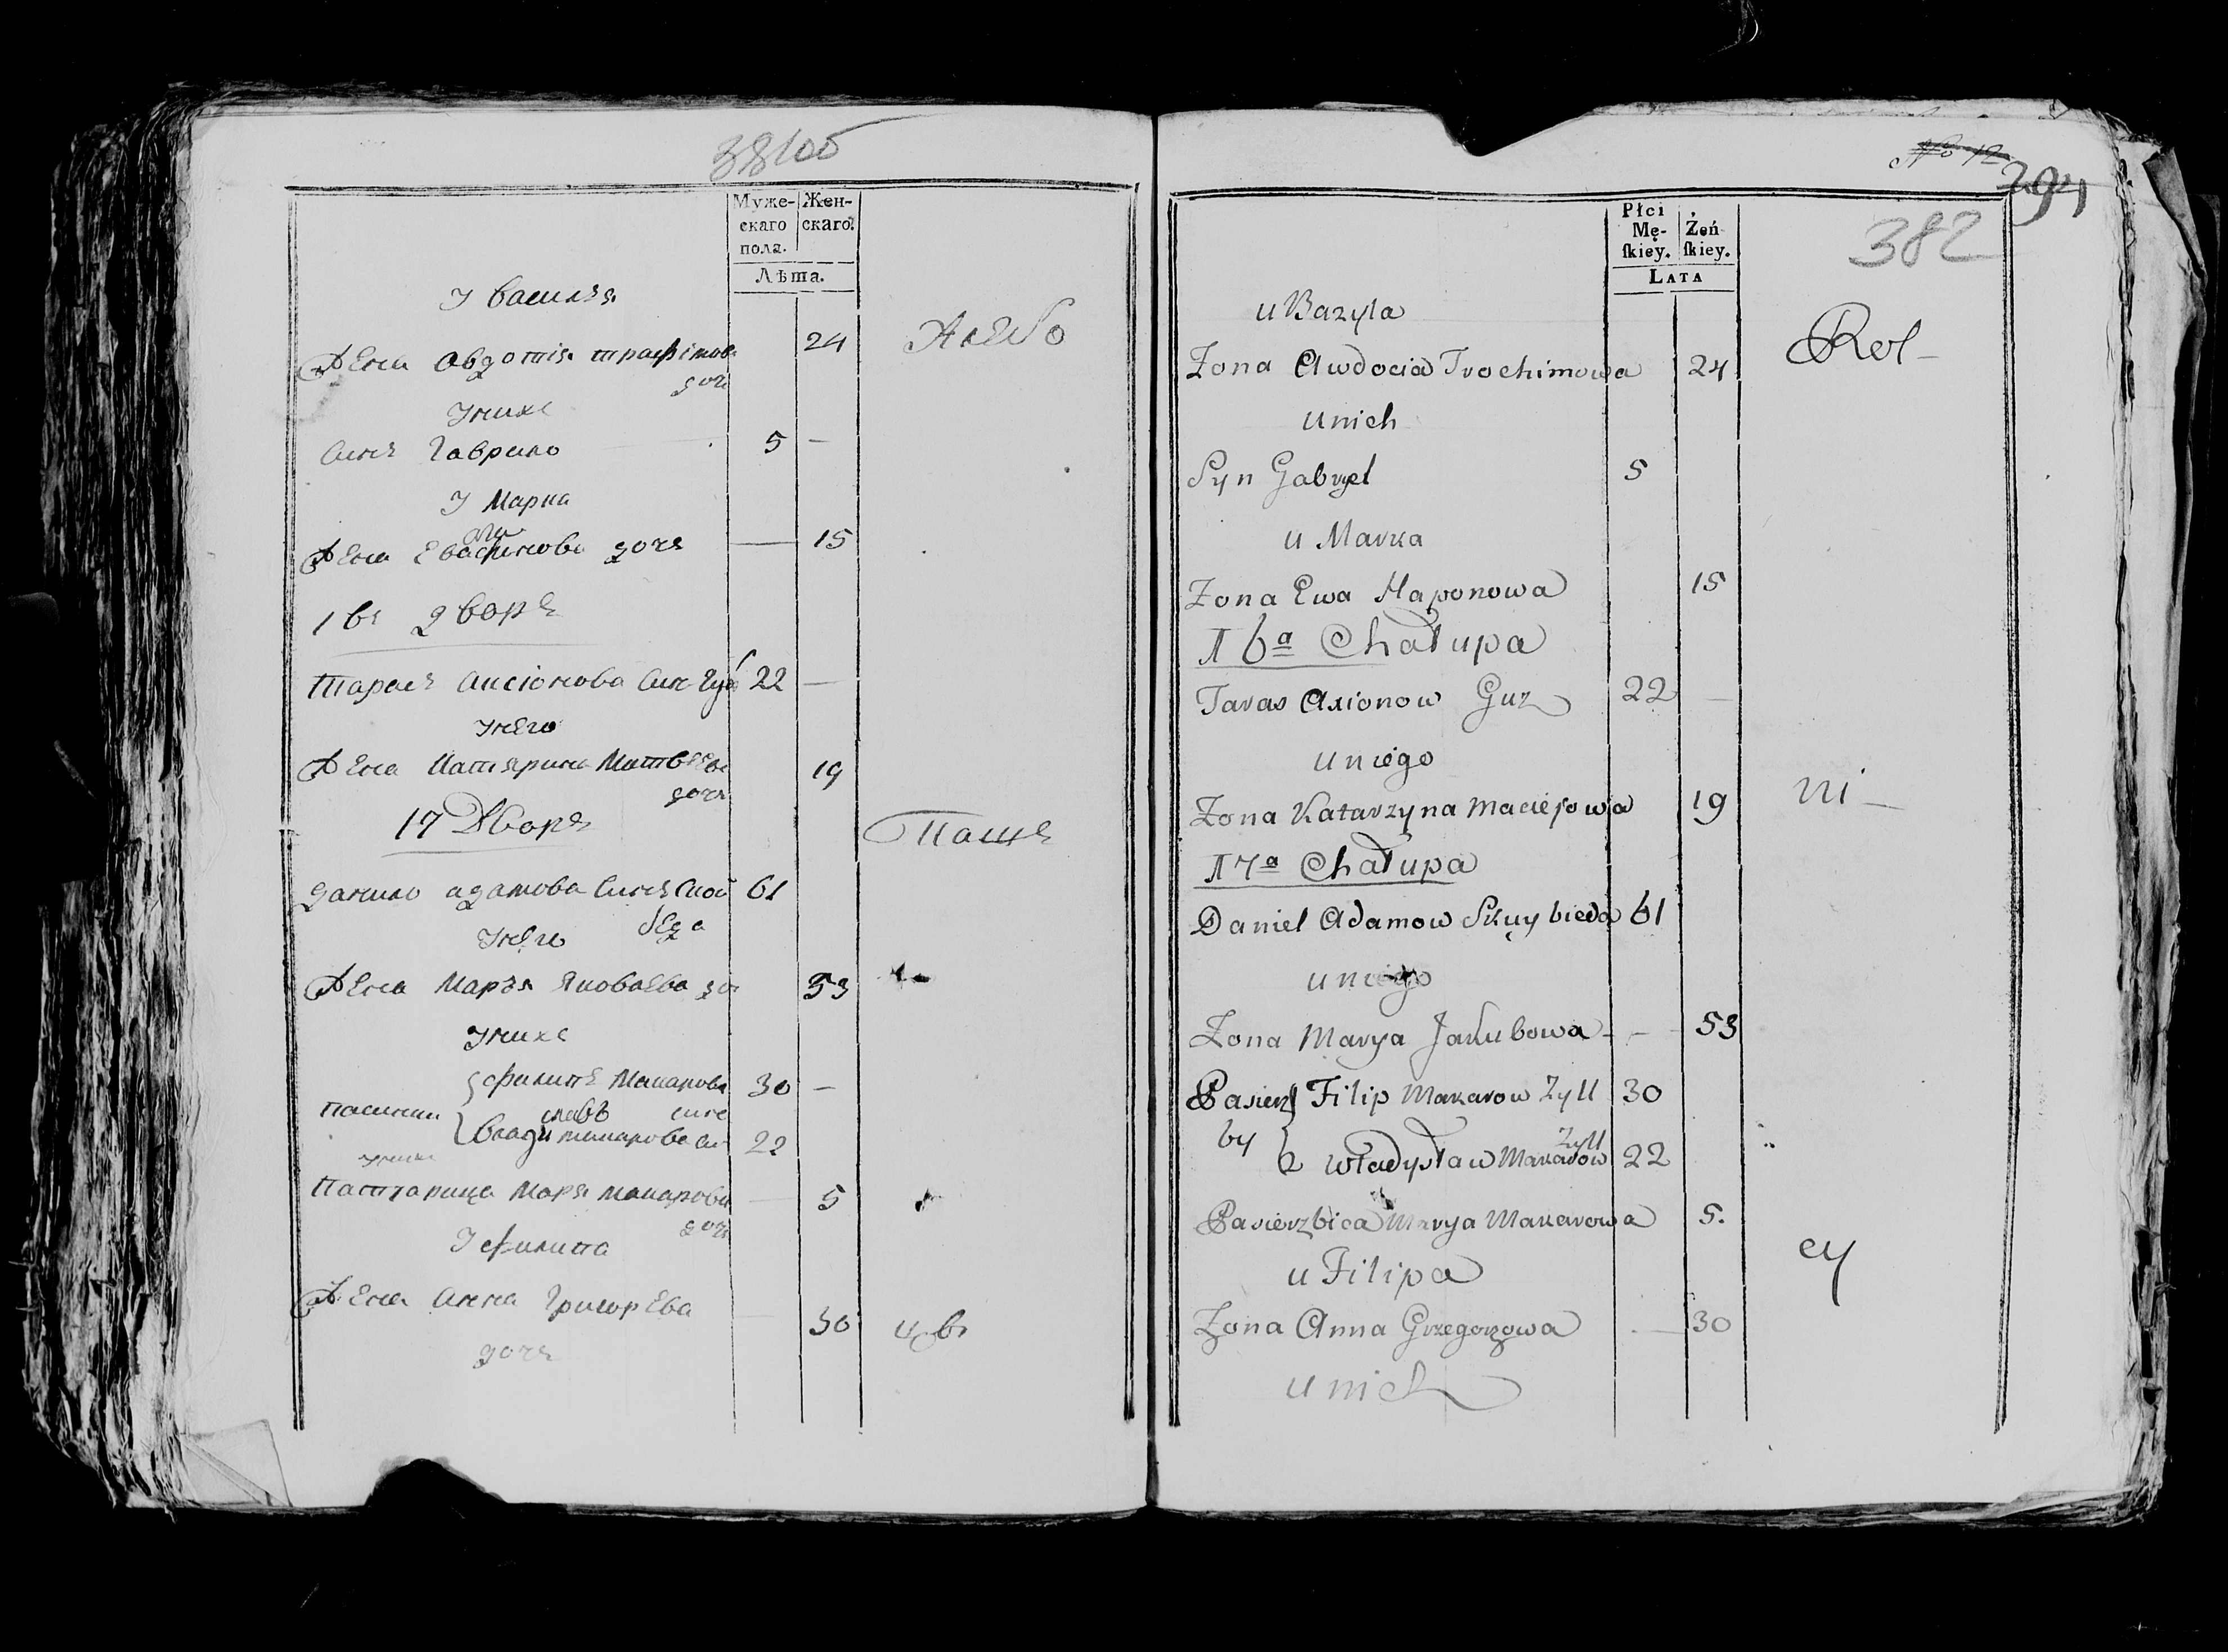 38100
Муже-
скаго
пола.
Жен-
скаго.
Лѣта.
У Василья
Жена Авдотія трафімова 24
дочь
Хлебо
У нихъ
Синъ Гаврило 5 —
У Марка
Жена Ева Гапонова дочь — 15
1 6й дворъ
Тарасъ Аксіонова Синъ Гузъ 22 —
У него
Жена Катярина Матвеева 19
дочь
17 Дворъ
Паше
Данило адамова Синъ Ской 61
беда
У него
Жена Маръя Яковлева до 53
У нихъ
пасинки
Филипъ Макарова 30 —
синъ
Владиславъ макарова си 22
у нихъ
Патчарица Маря макарова — 5
дочь
У филипа
Жена Анна Григорьева — 30
дочь
цовъ
№ 12
294
382
Płci
Mę-
ſkiey.
Żeń
ſkiey.
LATA
u Bazyla
Rol-
Zona Awdocia Trochimowa 24
u nich
Syn Gabryel 5
u Marka
Zona Ewa Haponowa 15
16ª Chałupa
Taras Axionow Guz 22 —
u niego
Zona Katarzyna Maciejowa 19
ni-
17ª Chałupa
Daniel Adamow Skuybieda 61
u niego
Zona Marya Jakubowa - - 53
Pasierz Filip Makarow Zyll 30
by
2 Władysław Makarow Zyll 22
Pasierzbica Marya Makarowa 5.
cy
u Filipa
Zona Anna Grzegorzowa — 30
u nich